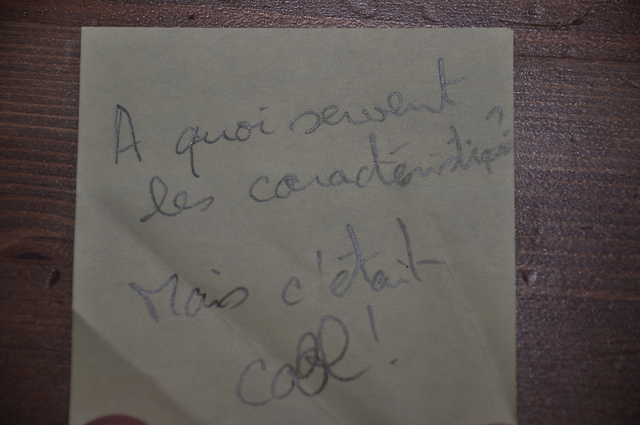 A quoi servent
les caractéristiques?
Mais c'était
cool!